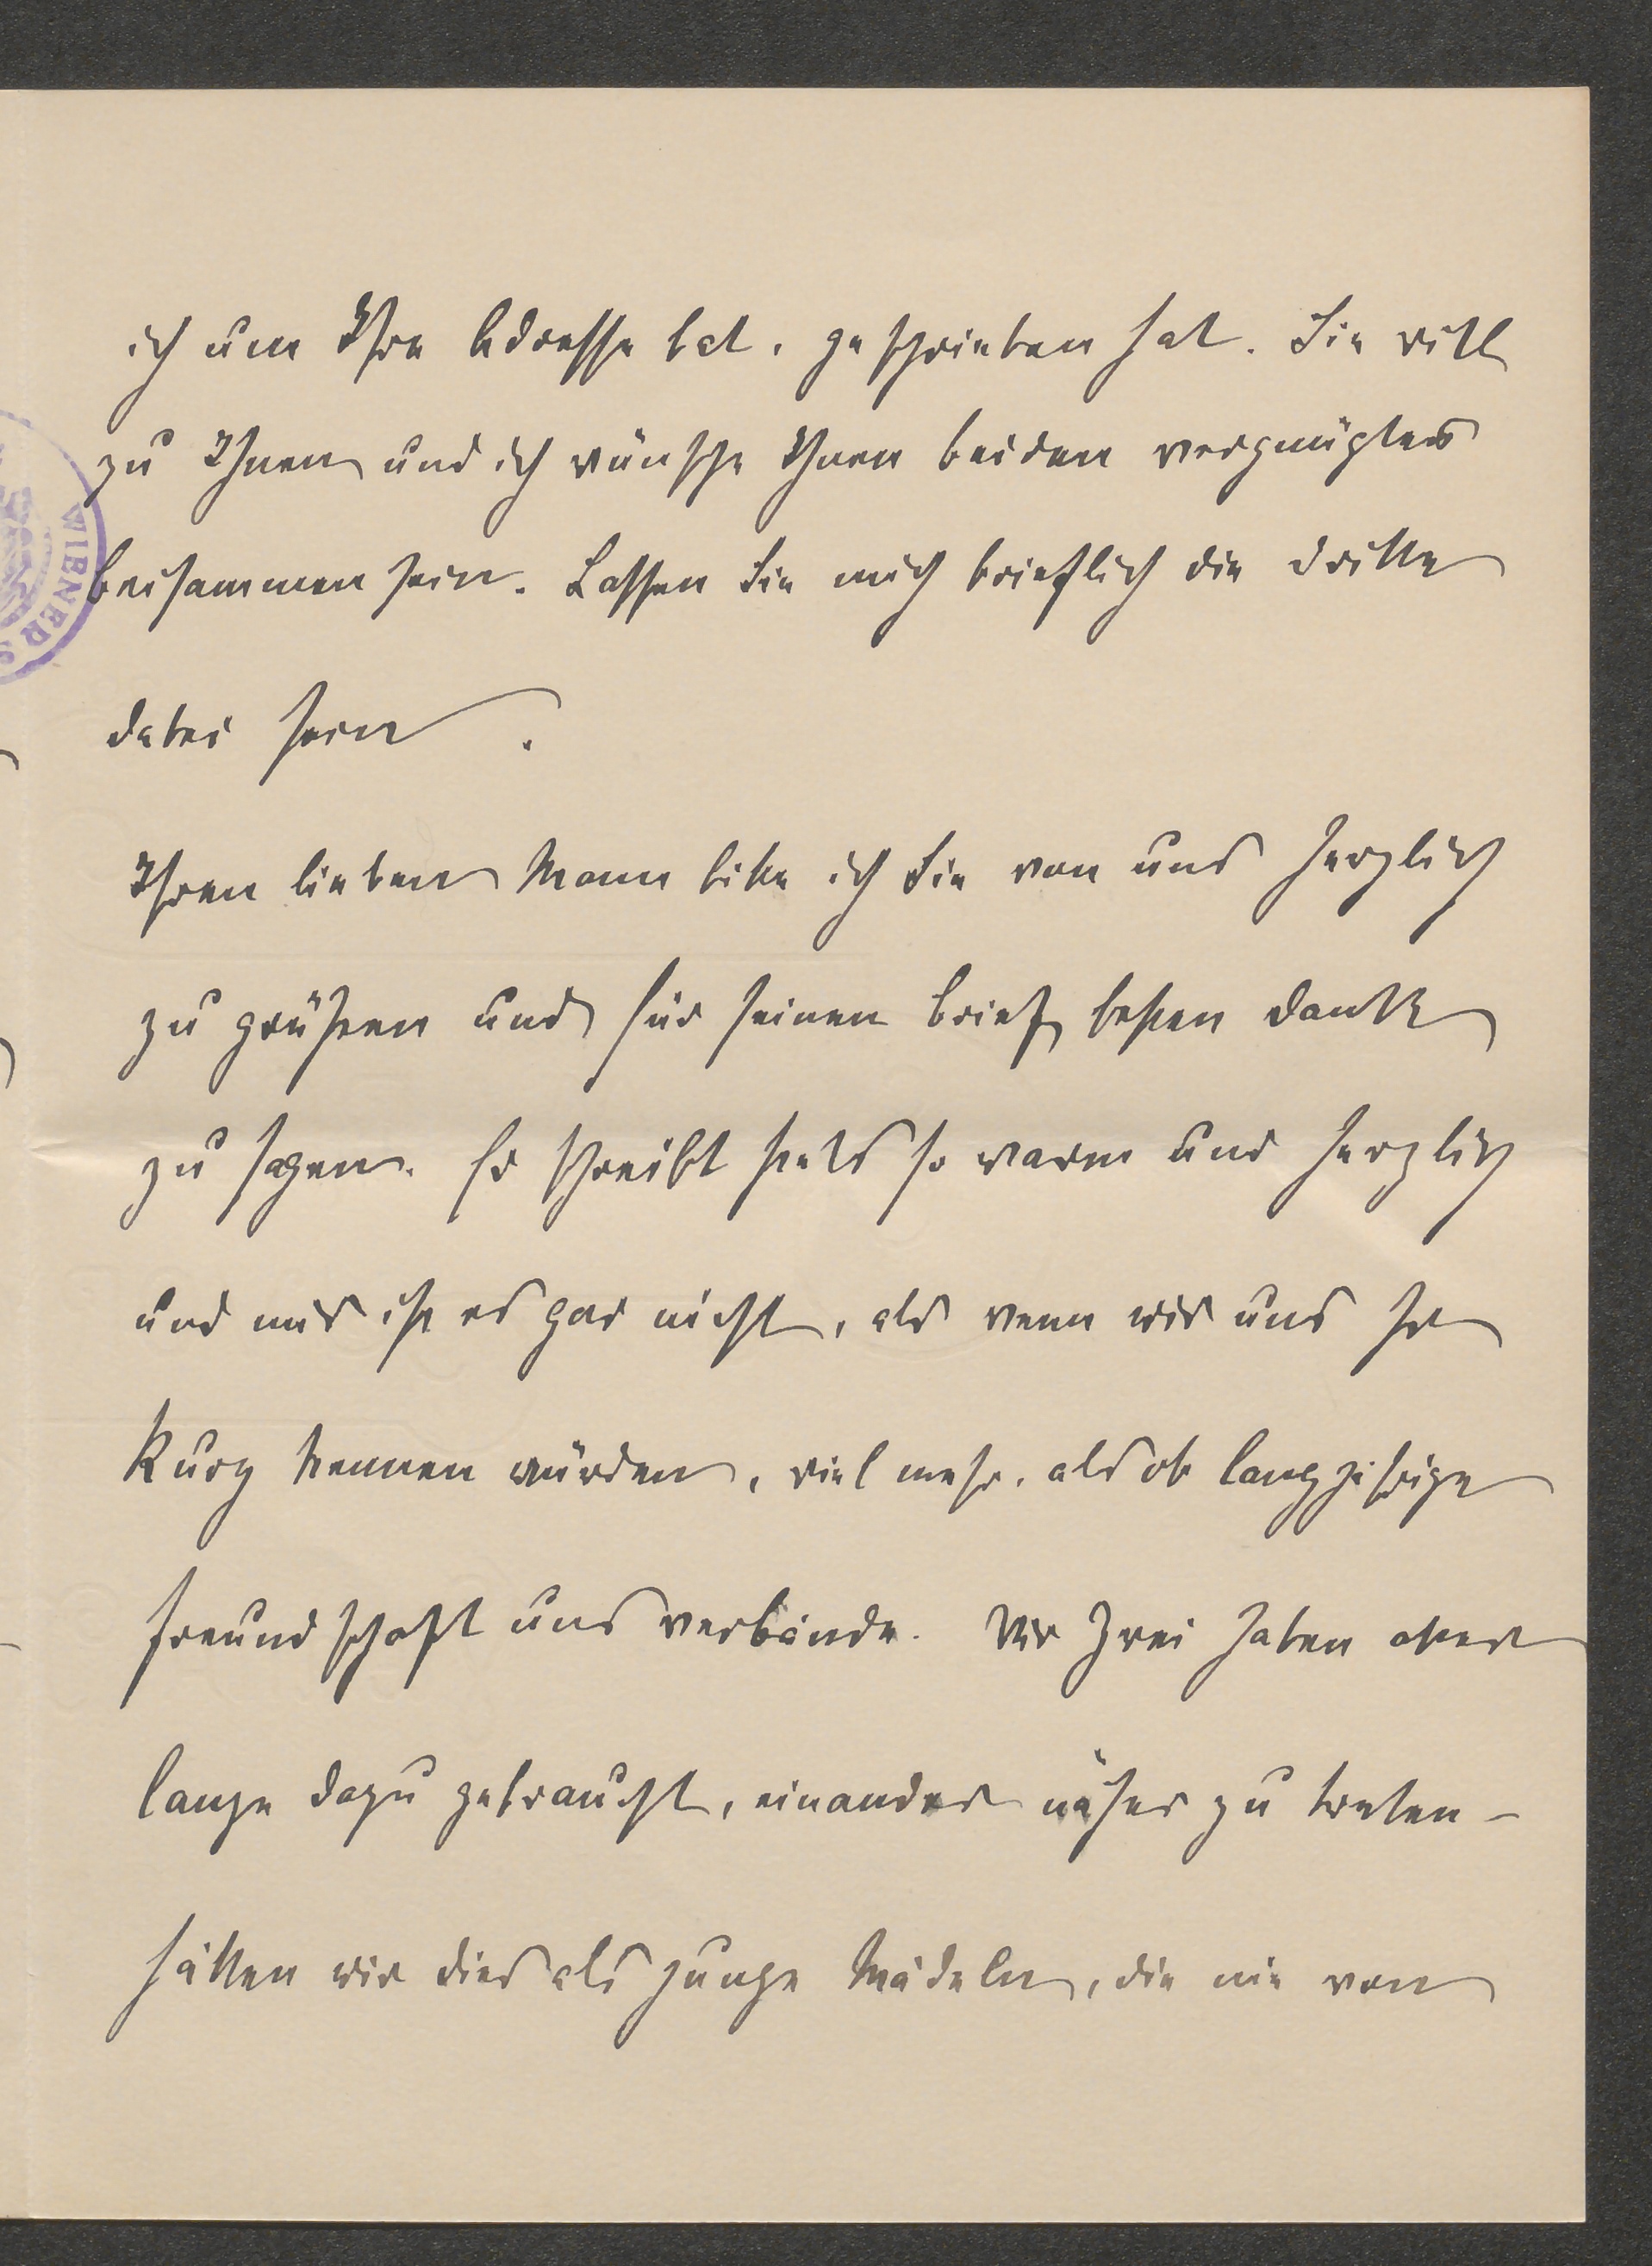 ich um Ihre Adresse bat, geschrieben hat. Sie will
zu Ihnen und ich wünsche Ihnen beiden vergnügtes
beisammen sein. Lassen Sie mich brieflich die dritte
dabei sein.
Ihren lieben Mann bitte ich Sie von uns herzlich
zu grüßen und für seinen Brief besten Dank
zu sagen. Er schreibt stets so warm und herzlich
und mir ist es gar nicht, als wenn wir uns so
kurz kennen würden, viel mehr, als ob langjährige
Freundschaft uns verbände. Wir zwei haben aber
lange dazu gebraucht, einander näher zu treten –
hätten wir dies als junge Mädeln, die nie von
WIENER S